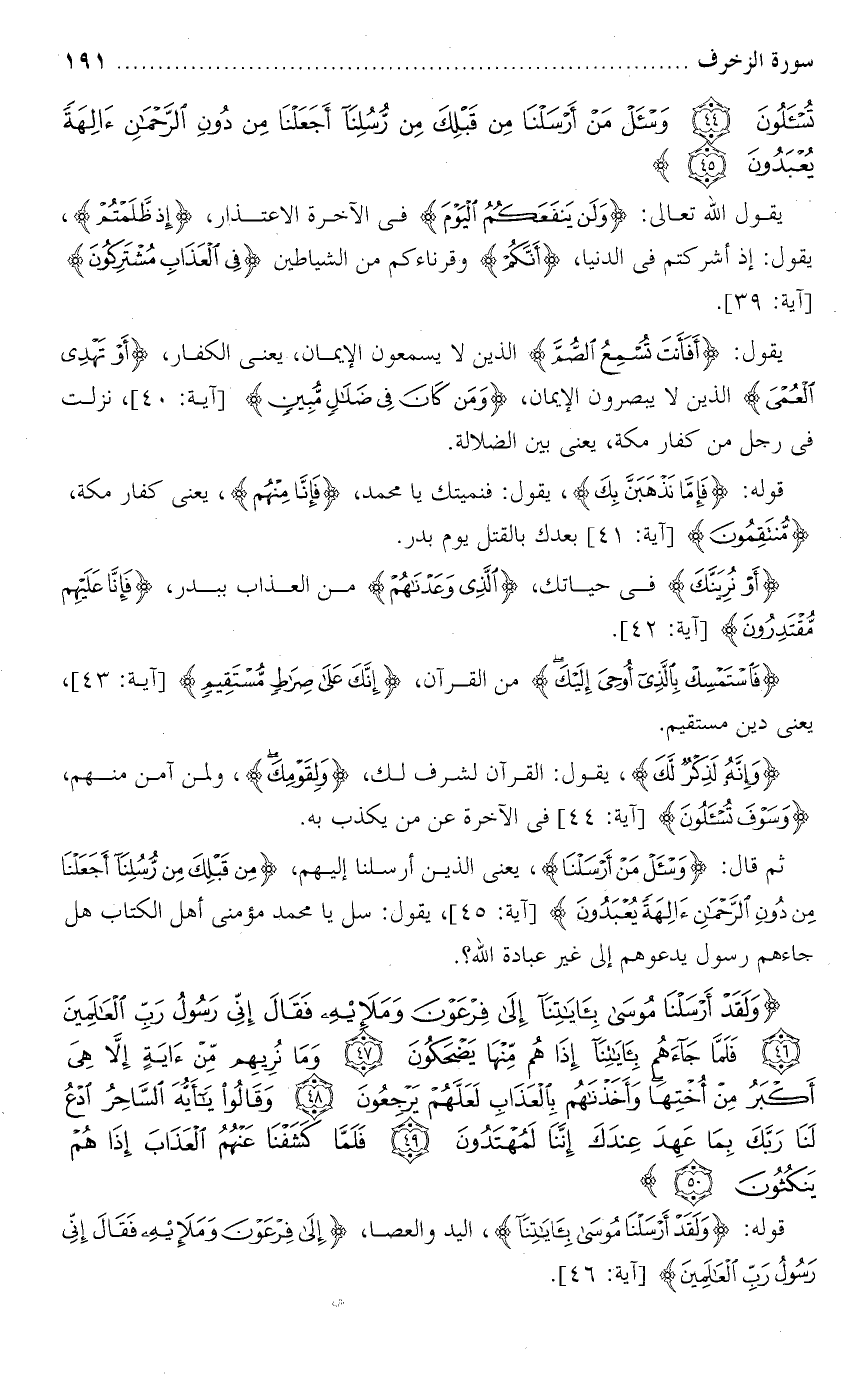 سورة الزخرف ........................................................................ ١٩١
تُسْـَٔلُونَ ٤٤ وَسْـَٔلْ مَنْ أَرْسَلْنَا مِن قَبْلِكَ مِن رُّسُلِنَآ أَجَعَلْنَا مِن دُونِ ٱلرَّحْمَـٰنِ ءَالِهَةً
يُعْبَدُونَ ٤٥ ﴾
يقول الله تعالى: ﴿وَلَن يَنفَعَكُمُ ٱلْيَوْمَ﴾ فى الآخرة الاعتذار، ﴿إِذ ظَّلَمْتُمْ﴾،
يقول: إذ أشركتم فى الدنيا، ﴿أَنَّكُمْ﴾ وقرناءكم من الشياطين ﴿فِى ٱلْعَذَابِ مُشْتَرِكُونَ﴾
[آية: ٣٩].
يقول: ﴿أَفَأَنتَ تُسْمِعُ ٱلصُّمَّ﴾ الذين لا يسمعون الإيمان، يعنى الكفار، ﴿أَوْ تَهْدِى
ٱلْعُمْىَ﴾ الذين لا يبصرون الإيمان، ﴿وَمَن كَانَ فِى ضَلَـٰلٍ مُّبِينٍ﴾ [آية: ٤٠]، نزلت
فى رجل من كفار مكة، يعنى بين الضلالة.
قوله: ﴿فَإِمَّا نَذْهَبَنَّ بِكَ﴾، يقول: فنميتك يا محمد، ﴿فَإِنَّا مِنْهُم﴾، يعنى كفار مكة،
﴿مُّنتَقِمُونَ﴾ [آية: ٤١] بعدك بالقتل يوم بدر.
﴿أَوْ نُرِيَنَّكَ﴾ فى حياتك، ﴿ٱلَّذِى وَعَدْنَـٰهُمْ﴾ من العذاب ببدر، ﴿فَإِنَّا عَلَيْهِم
مُّقْتَدِرُونَ﴾ [آية: ٤٢].
﴿فَٱسْتَمْسِكْ بِٱلَّذِىٓ أُوحِىَ إِلَيْكَ ۖ﴾ من القرآن، ﴿إِنَّكَ عَلَىٰ صِرَٰطٍ مُّسْتَقِيمٍ﴾ [آية: ٤٣]،
يعنى دين مستقيم.
﴿وَإِنَّهُۥ لَذِكْرٌ لَّكَ﴾، يقول: القرآن لشرف لك، ﴿وَلِقَوْمِكَ ۖ﴾، ولمن آمن منهم،
﴿وَسَوْفَ تُسْـَٔلُونَ﴾ [آية: ٤٤] فى الآخرة عن من يكذب به.
ثم قال: ﴿وَسْـَٔلْ مَنْ أَرْسَلْنَا﴾، يعنى الذين أرسلنا إليهم، ﴿مِن قَبْلِكَ مِن رُّسُلِنَآ أَجَعَلْنَا
مِن دُونِ ٱلرَّحْمَـٰنِ ءَالِهَةً يُعْبَدُونَ﴾ [آية: ٤٥]، يقول: سل يا محمد مؤمنى أهل الكتاب هل
جاءهم رسول يدعوهم إلى غير عبادة الله؟.
﴿وَلَقَدْ أَرْسَلْنَا مُوسَىٰ بِـَٔايَـٰتِنَآ إِلَىٰ فِرْعَوْنَ وَمَلَإِي۟هِۦ فَقَالَ إِنِّى رَسُولُ رَبِّ ٱلْعَـٰلَمِينَ
٤٦ فَلَمَّا جَآءَهُم بِـَٔايَـٰتِنَآ إِذَا هُم مِّنْهَا يَضْحَكُونَ ٤٧ وَمَا نُرِيهِم مِّنْ ءَايَةٍ إِلَّا هِىَ
أَكْبَرُ مِنْ أُخْتِهَا ۖ وَأَخَذْنَـٰهُم بِٱلْعَذَابِ لَعَلَّهُمْ يَرْجِعُونَ ٤٨ وَقَالُوا۟ يَـٰٓأَيُّهَ ٱلسَّاحِرُ ٱدْعُ
لَنَا رَبَّكَ بِمَا عَهِدَ عِندَكَ إِنَّنَا لَمُهْتَدُونَ ٤٩ فَلَمَّا كَشَفْنَا عَنْهُمُ ٱلْعَذَابَ إِذَا هُمْ
يَنكُثُونَ ٥٠ ﴾
قوله: ﴿وَلَقَدْ أَرْسَلْنَا مُوسَىٰ بِـَٔايَـٰتِنَآ﴾، اليد والعصا، ﴿إِلَىٰ فِرْعَوْنَ وَمَلَإِي۟هِۦ فَقَالَ إِنِّى
رَسُولُ رَبِّ ٱلْعَـٰلَمِينَ﴾ [آية: ٤٦].